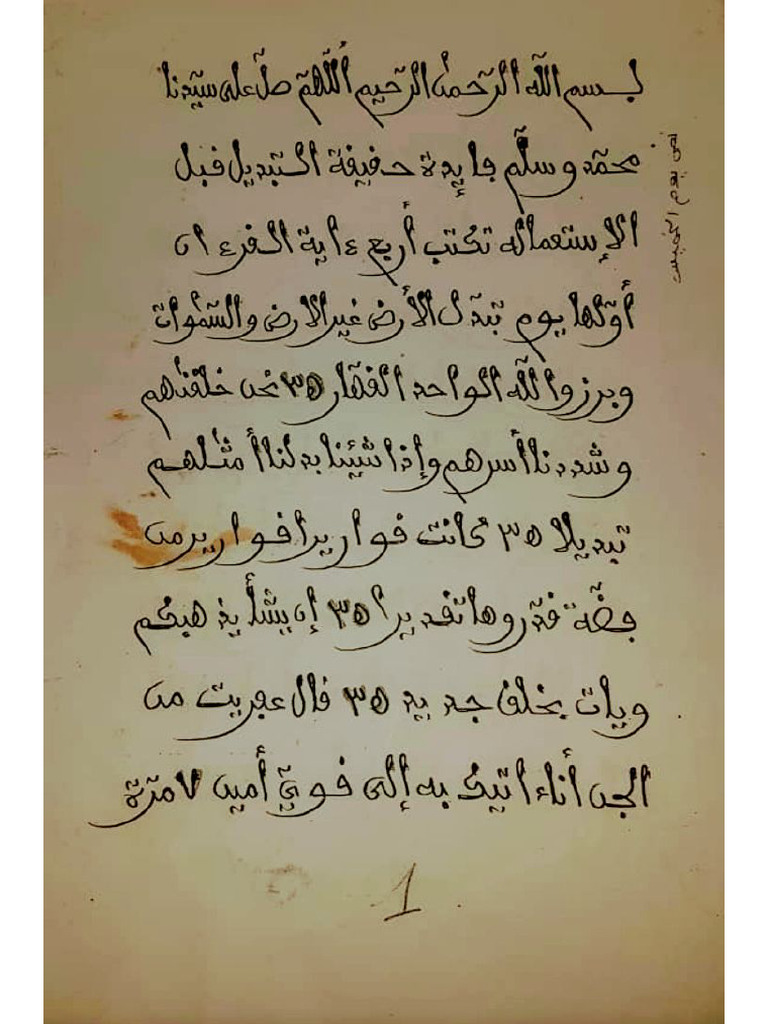 بسم اللّه الرّحمٰن الرّحيم اُللّهمّ صلّ على سيّدنا
محمّد وسلّم ڢاٻِٕدة حڢيڧة التبديل ڧبل
الإستعماله تكتب أربع ءاية الڧرءان
أوّلها يوم تبدّل الأرض غير الارض والسّمٰوات
وبرزوا للّه الواحد الڧهّار ٣٥ نحن خلڧنٰهم
وشددنا أسرهم وإذا شئنا بدلنا أمثٰلهم
تبديلا ٣٥ كانت ڧواريرا ڧوارير من
ڢضّة ڧدّروها تڧديرا ٣٥ إن يشأ يذهبكم
ويات بخلڧ جديد ٣٥ ڧال عڢريت من
الجن أناءاتيك به إلى ڧويّ أمين ٧ مرّة
1